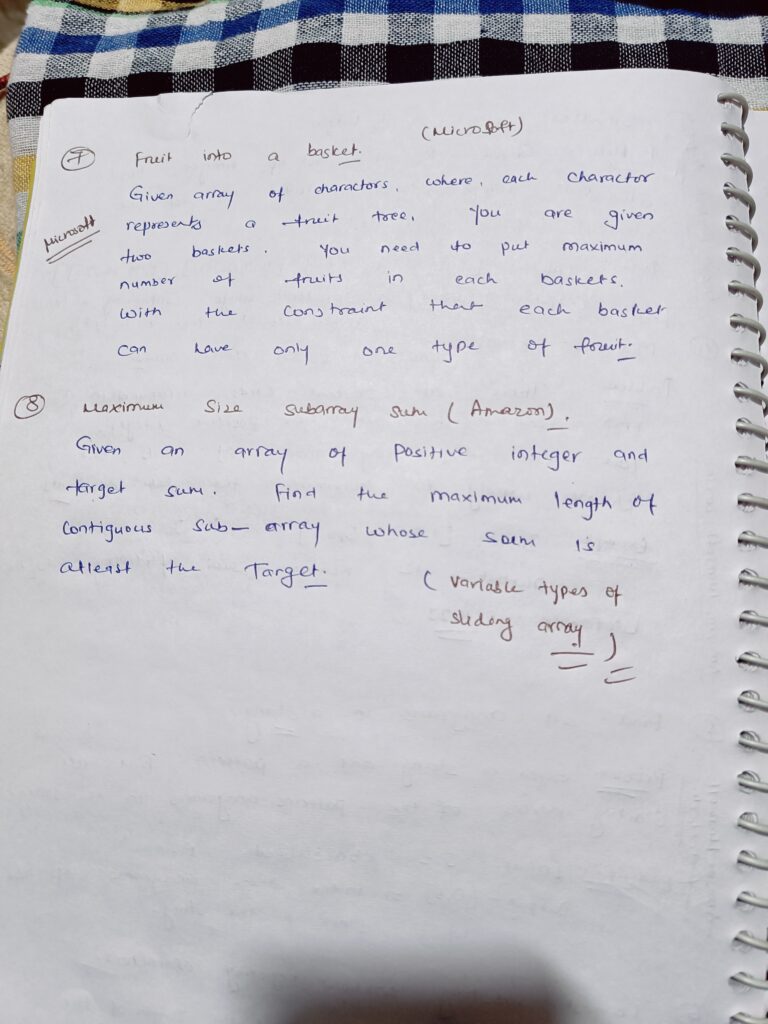 (Microsoft)
7 Fruit into a basket.
Given array of charactors, where, each charactor
Microsoft
represents a fruit tree. You are given
two baskets. You need to put maximum
number of fruits in each baskets.
with the constraint that each basket
can have only one type of fruit.
8 Maximum Size subarray sum (Amazon).
Given an array of Positive integer and
target sum. Find the maximum length of
Contiguous Sub-array whose sum is
atleast the Target.
(variable types of
sliding array)